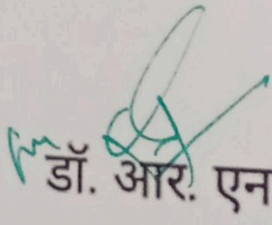 डॉ. आर. एन